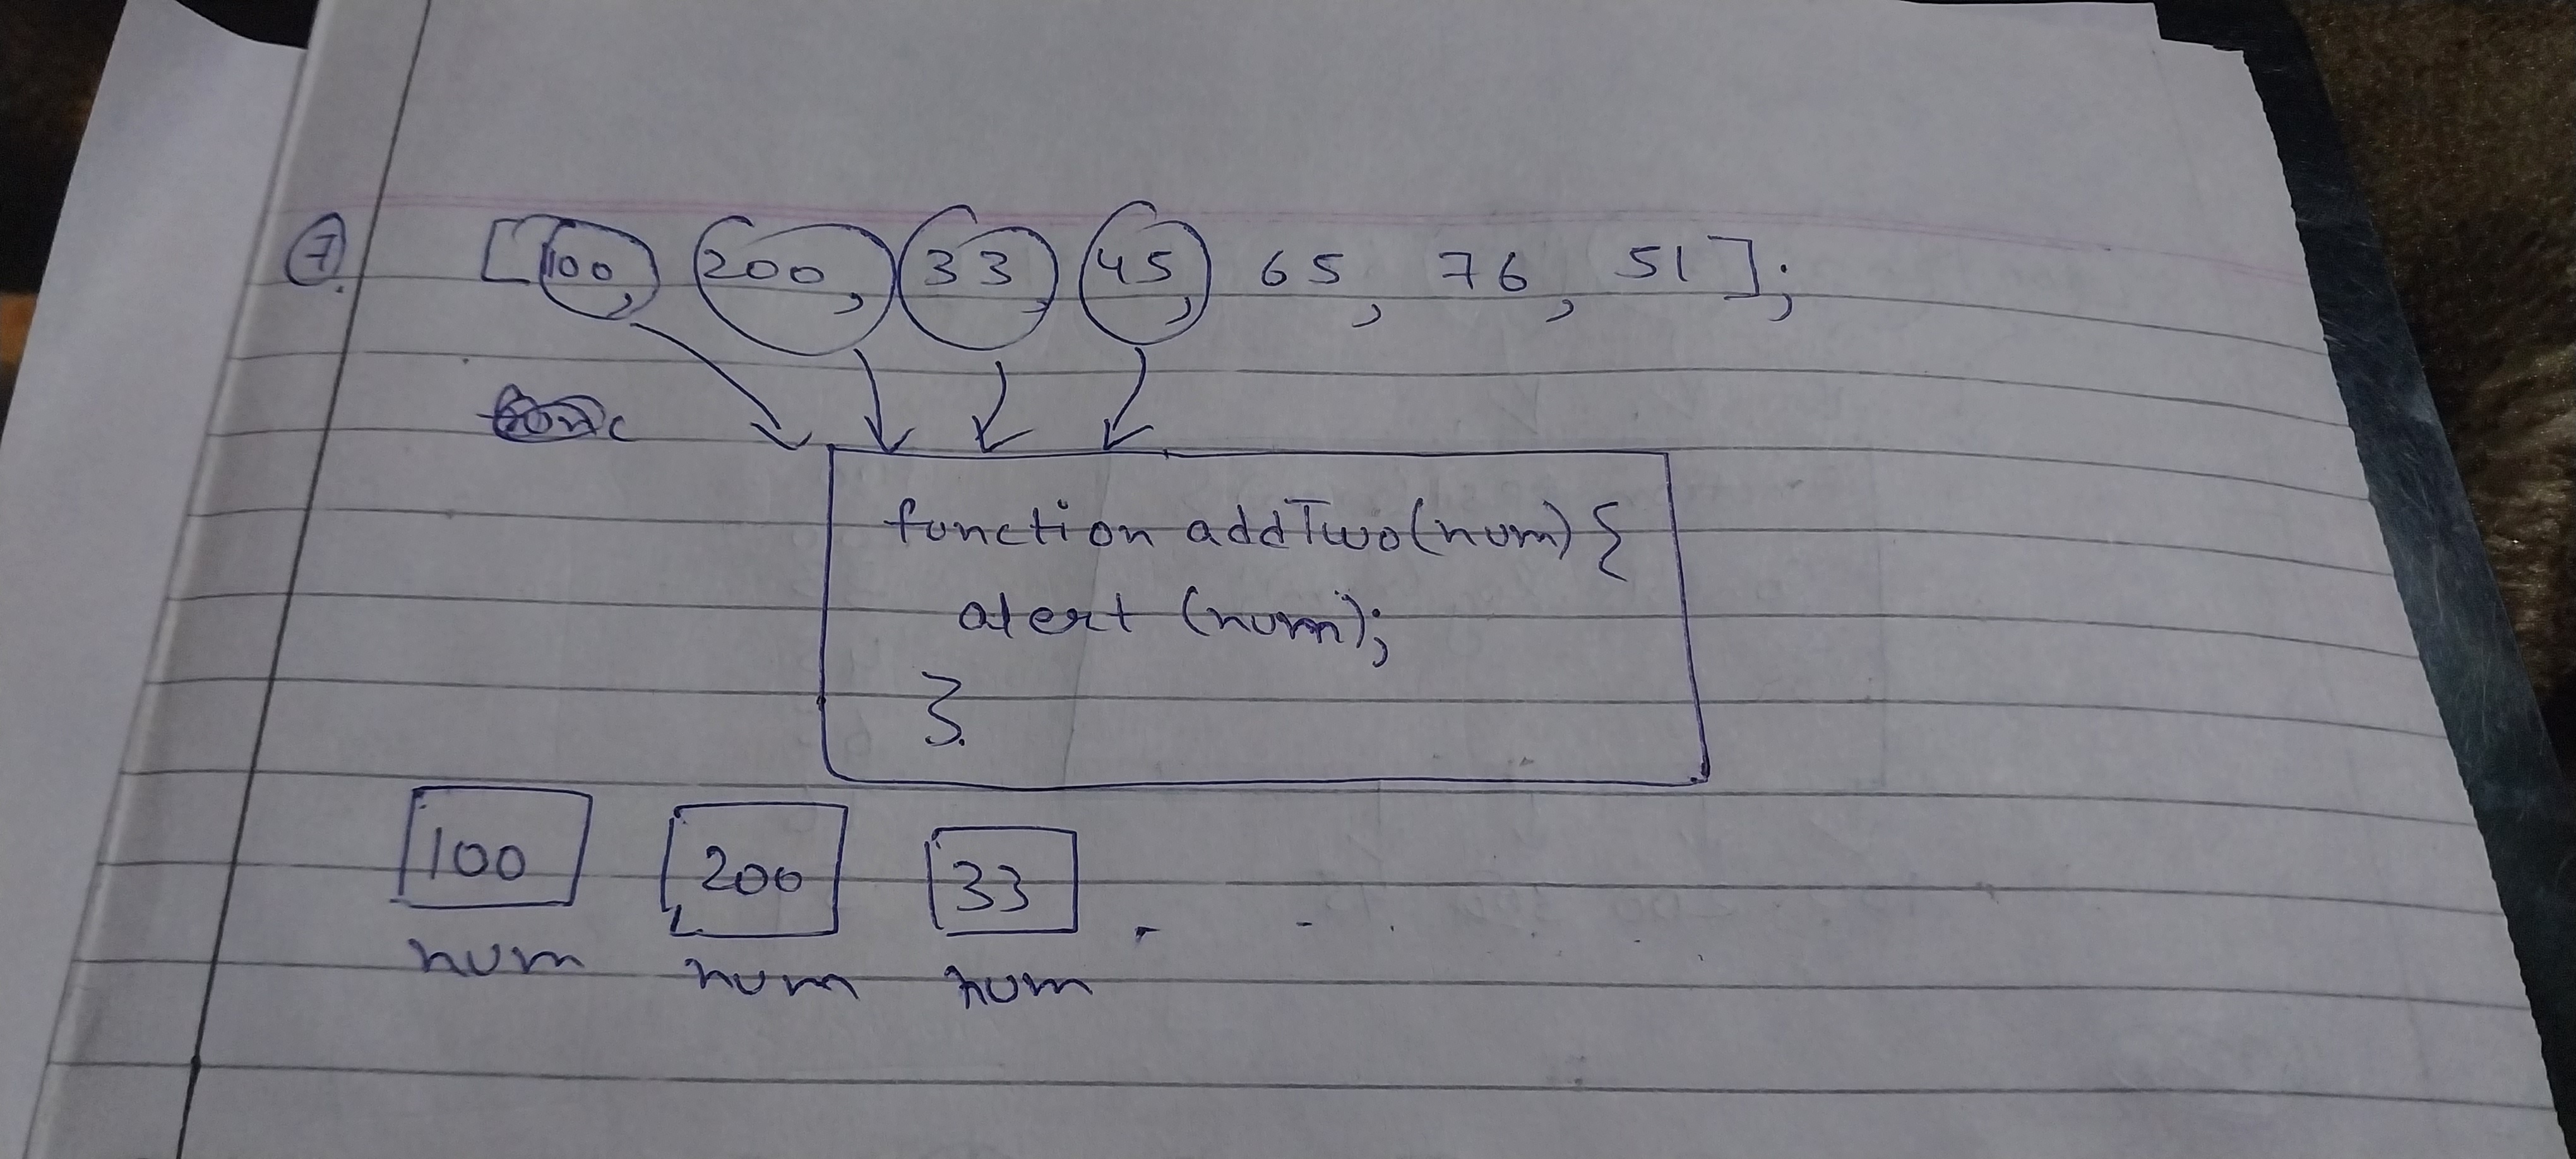 7.
[100, 200, 33, 45, 65, 76, 51];
function addTwo(num) {
alert (num);
}
100 200 33 . .
num num num